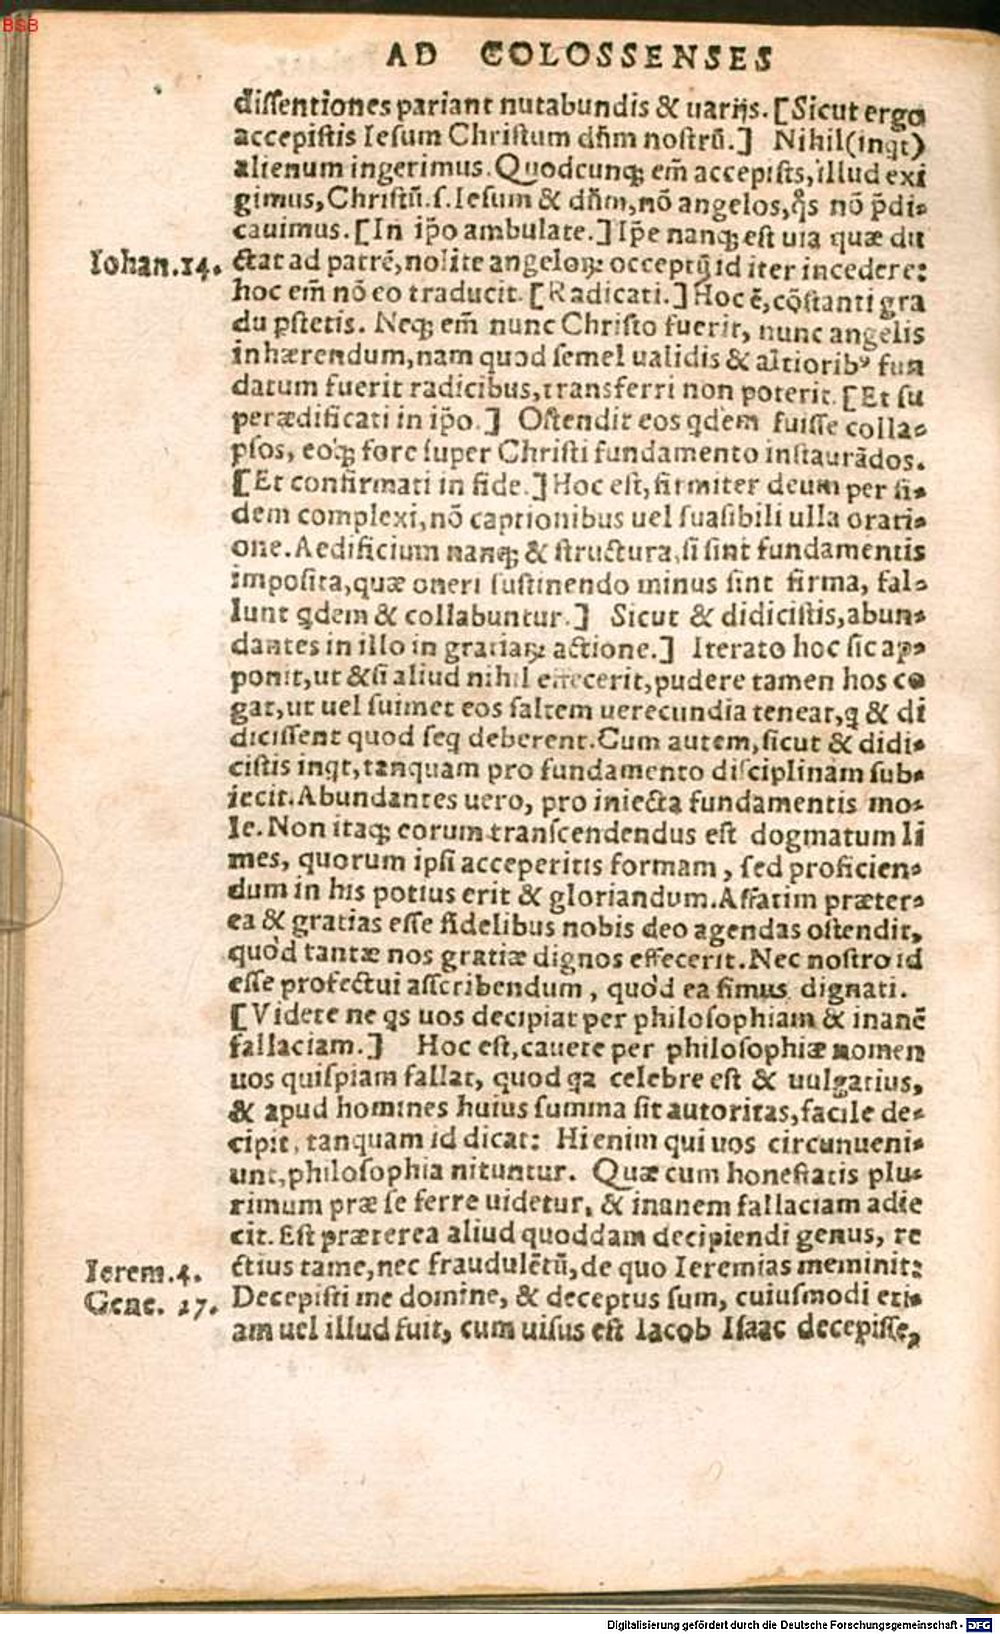 BSB
AD COLOSSENSES
dissentiones pariant nutabundis & uarijs. [Sicut ergo
accepistis Iesum Christum dñm nostrũ.] Nihil(inqt)
alienum ingerimus. Quodcunq; em̃ accepistis, illud exi
gimus, Christũ. s. Iesum & dñm, nõ angelos, q̊s nõ p̃di-
cauimus. [In ip̃o ambulate.] Ip̃e nanq; est uia quæ du
Iohan.14. ctat ad patrẽ, nolite angeloꝝ occeptũ id iter incedere:
hoc em̃ nõ eo traducit. [Radicati.] Hoc ẽ, cõstanti gra
du pstetis. Neq; em̃ nunc Christo fuerit, nunc angelis
inhærendum, nam quod semel ualidis & altioribꝰ fun
datum fuerit radicibus, transferri non poterit. [Et su
peræedificati in ip̃o.] Ostendit eos qdem fuisse colla-
psos, eosq; fore super Christi fundamento instaurãdos.
[Et confirmati in fide.] Hoc est, firmiter deum per fi-
dem complexi, nõ captionibus uel suasibili ulla orati-
one. Aedificium nanq; & structura, si sint fundamentis
imposita, quæ oneri sustinendo minus sint firma, fal-
lunt qdem & collabuntur.] Sicut & didicistis, abun-
dantes in illo in gratiaꝝ actione.] Iterato hoc sic ap-
ponit, ut & si aliud nihil effecerit, pudere tamen hos co
gat, ut uel suimet eos saltem uerecundia teneat, q & di
dicissent quod seq deberent. Cum autem, sicut & didi-
cistis inqt, tanquam pro fundamento disciplinam sub-
iecit. Abundantes uero, pro iniecta fundamentis mo-
le. Non itaq; eorum transcendendus est dogmatum li
mes, quorum ipsi acceperitis formam, sed proficien-
dum in his potius erit & gloriandum. Affatim præter-
ea & gratias esse fidelibus nobis deo agendas ostendit,
quòd tantæ nos gratiæ dignos effecerit. Nec nostro id
esse profectui asscribendum, quòd ea simus dignati.
[Videte ne qs uos decipiat per philosophiam & inanẽ
fallaciam.] Hoc est, cauete per philosophiæ nomen
uos quispiam fallat, quod qa celebre est & uulgatius,
& apud homines huius summa sit autoritas, facile de-
cipit, tanquam id dicat: Hi enim qui uos circunueni-
unt, philosophia nituntur. Quæ cum honestatis plu-
rimum præ se ferre uidetur, & inanem fallaciam adie
cit. Est præterea aliud quoddam decipiendi genus, re
Ierem.4. ctius tame, nec fraudulẽtũ, de quo Ieremias meminit:
Gene. 27. Decepisti me domine, & deceptus sum, cuiusmodi eti-
am uel illud fuit, cum uisus est Iacob Isaac decepisse,
Digitalisierung gefördert durch die Deutsche Forschungsgemeinschaft - DFG